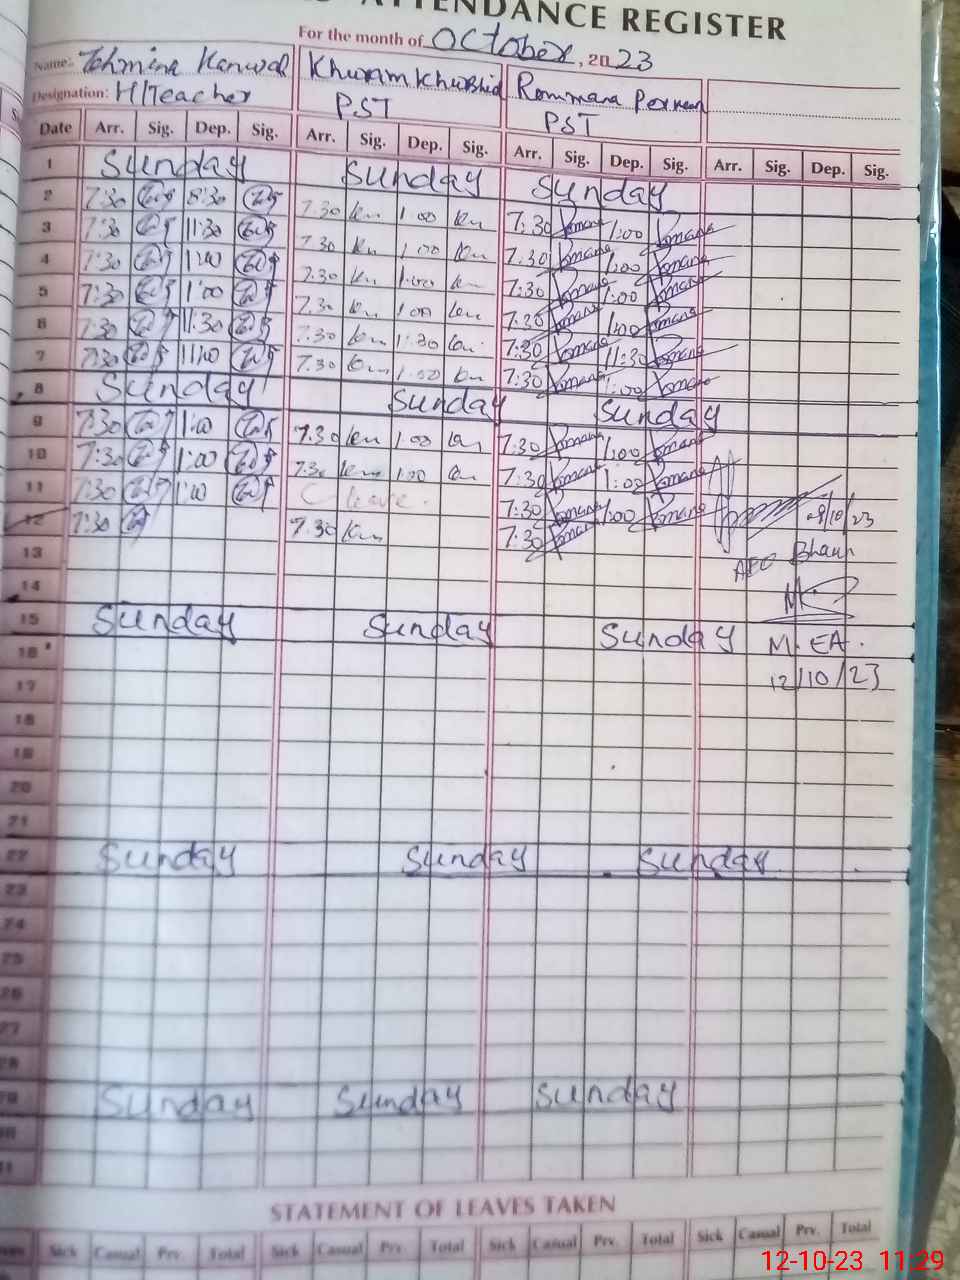 ATTENDANCE REGISTER
For the month of October, 2023
Name:- Tehmina Kanwal Khuram Khurshid Rommana Perveen
Designation: H/Teacher PST PST
Date Arr. Sig. Dep. Sig. Arr. Sig. Dep. Sig. Arr. Sig. Dep. Sig. Arr. Sig. Dep. Sig.
1 Sunday Sunday Sunday
2 7:30 8:30 7.30 km 1:00 km 7:30 Romana 1:00 Romana
3 7:30 11:30 7.30 km 1:00 km 7:30 Romana 1:00 Romana
4 7:30 1:00 7.30 km 1:00 km 7:30 Romana 1:00 Romana
5 7:30 1:00 7.30 km 1:00 km 7:30 Romana 1:00 Romana
6 7:30 11:30 7.30 km 11:30 km 7:30 Romana 11:30 Romana
7 7:30 11:00 7.30 km 1:00 km 7:30 Romana 1:00 Romana
8 Sunday Sunday Sunday
9 7:30 1:00 7.30 km 1:00 km 7:30 Romana 1:00 Romana
10 7:30 1:00 7.30 km 1:00 km 7:30 Romana 1:00 Romana
11 7:30 1:00 C leave. 7:30 Romana 1:00 Romana /10/23
12 7:30 7.30 km 7:30 Romana
13 AEO Bhaun
14
15 Sunday Sunday Sunday
16 M.EA.
17 12/10/23
18
19
20
21
22 Sunday Sunday Sunday
23
24
25
26
27
28
29 Sunday Sunday Sunday
30
31
STATEMENT OF LEAVES TAKEN
Sick Casual Prv. Total Sick Casual Prv. Total Sick Casual Prv. Total Sick Casual Prv. Total
12-10-23 11:29